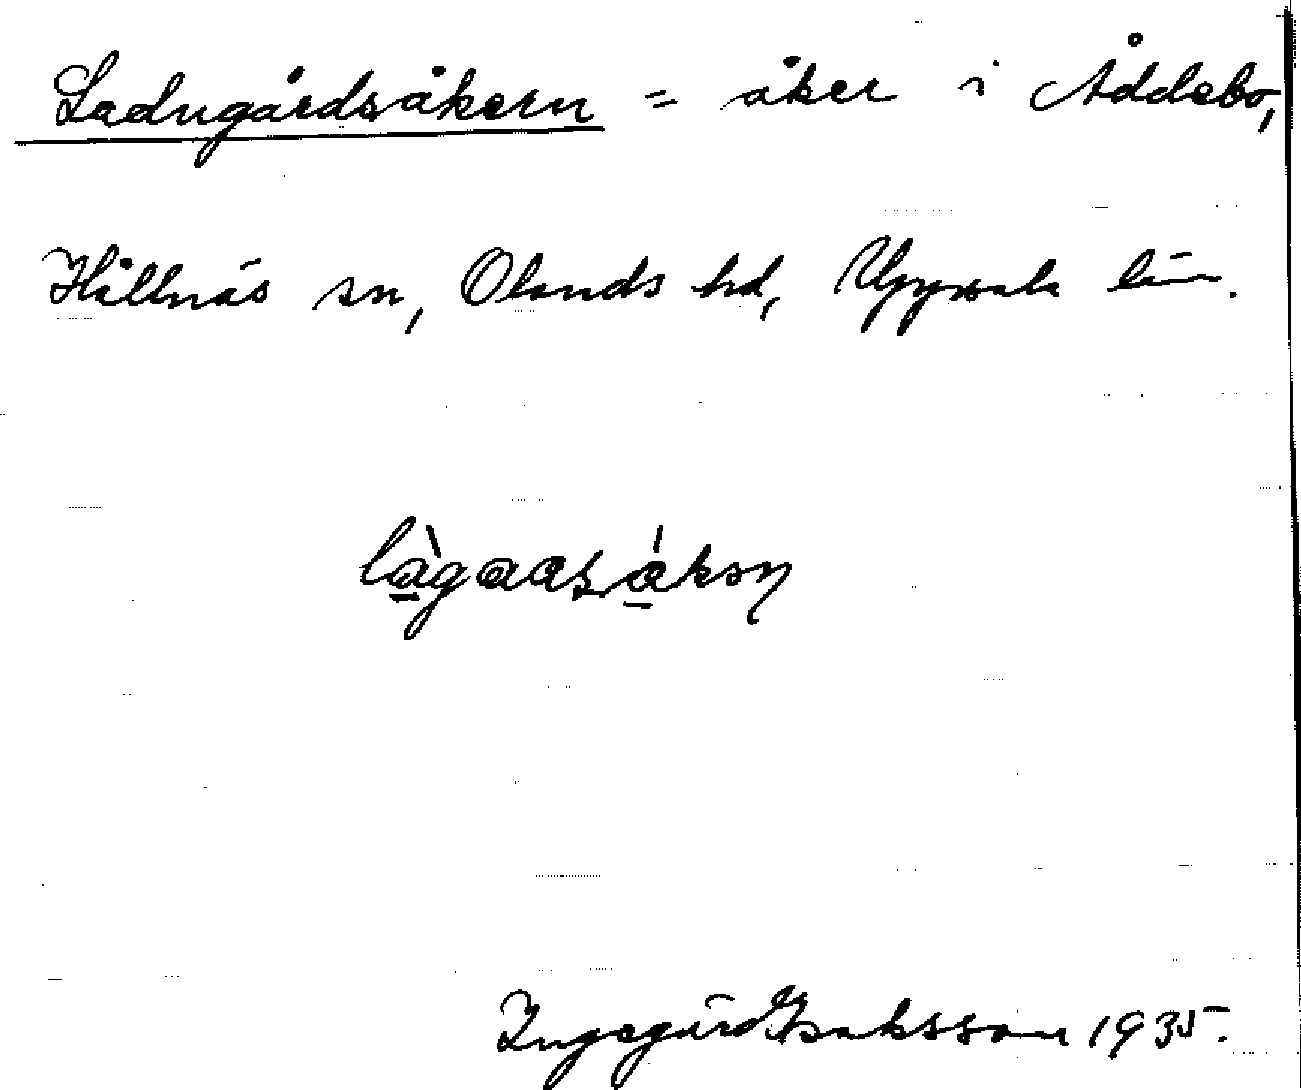 Ladugårdsåkern = åker i Åddebo,
Hållnäs sn, Olands hd, Uppsala län.
Ingegärd Isaksson 1935.